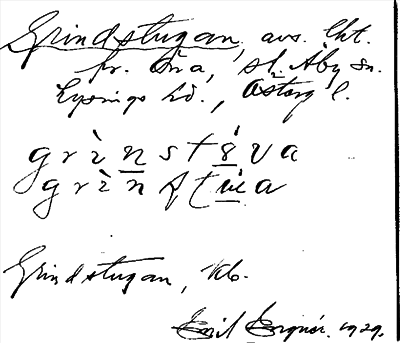 Grindstugan, avs. lht.
fr. Öna, st. Åby sn.
Lysings hd., Österg l.
grìnstśva
grìnstúa
Grindstugan, kb.
Emil 1929.